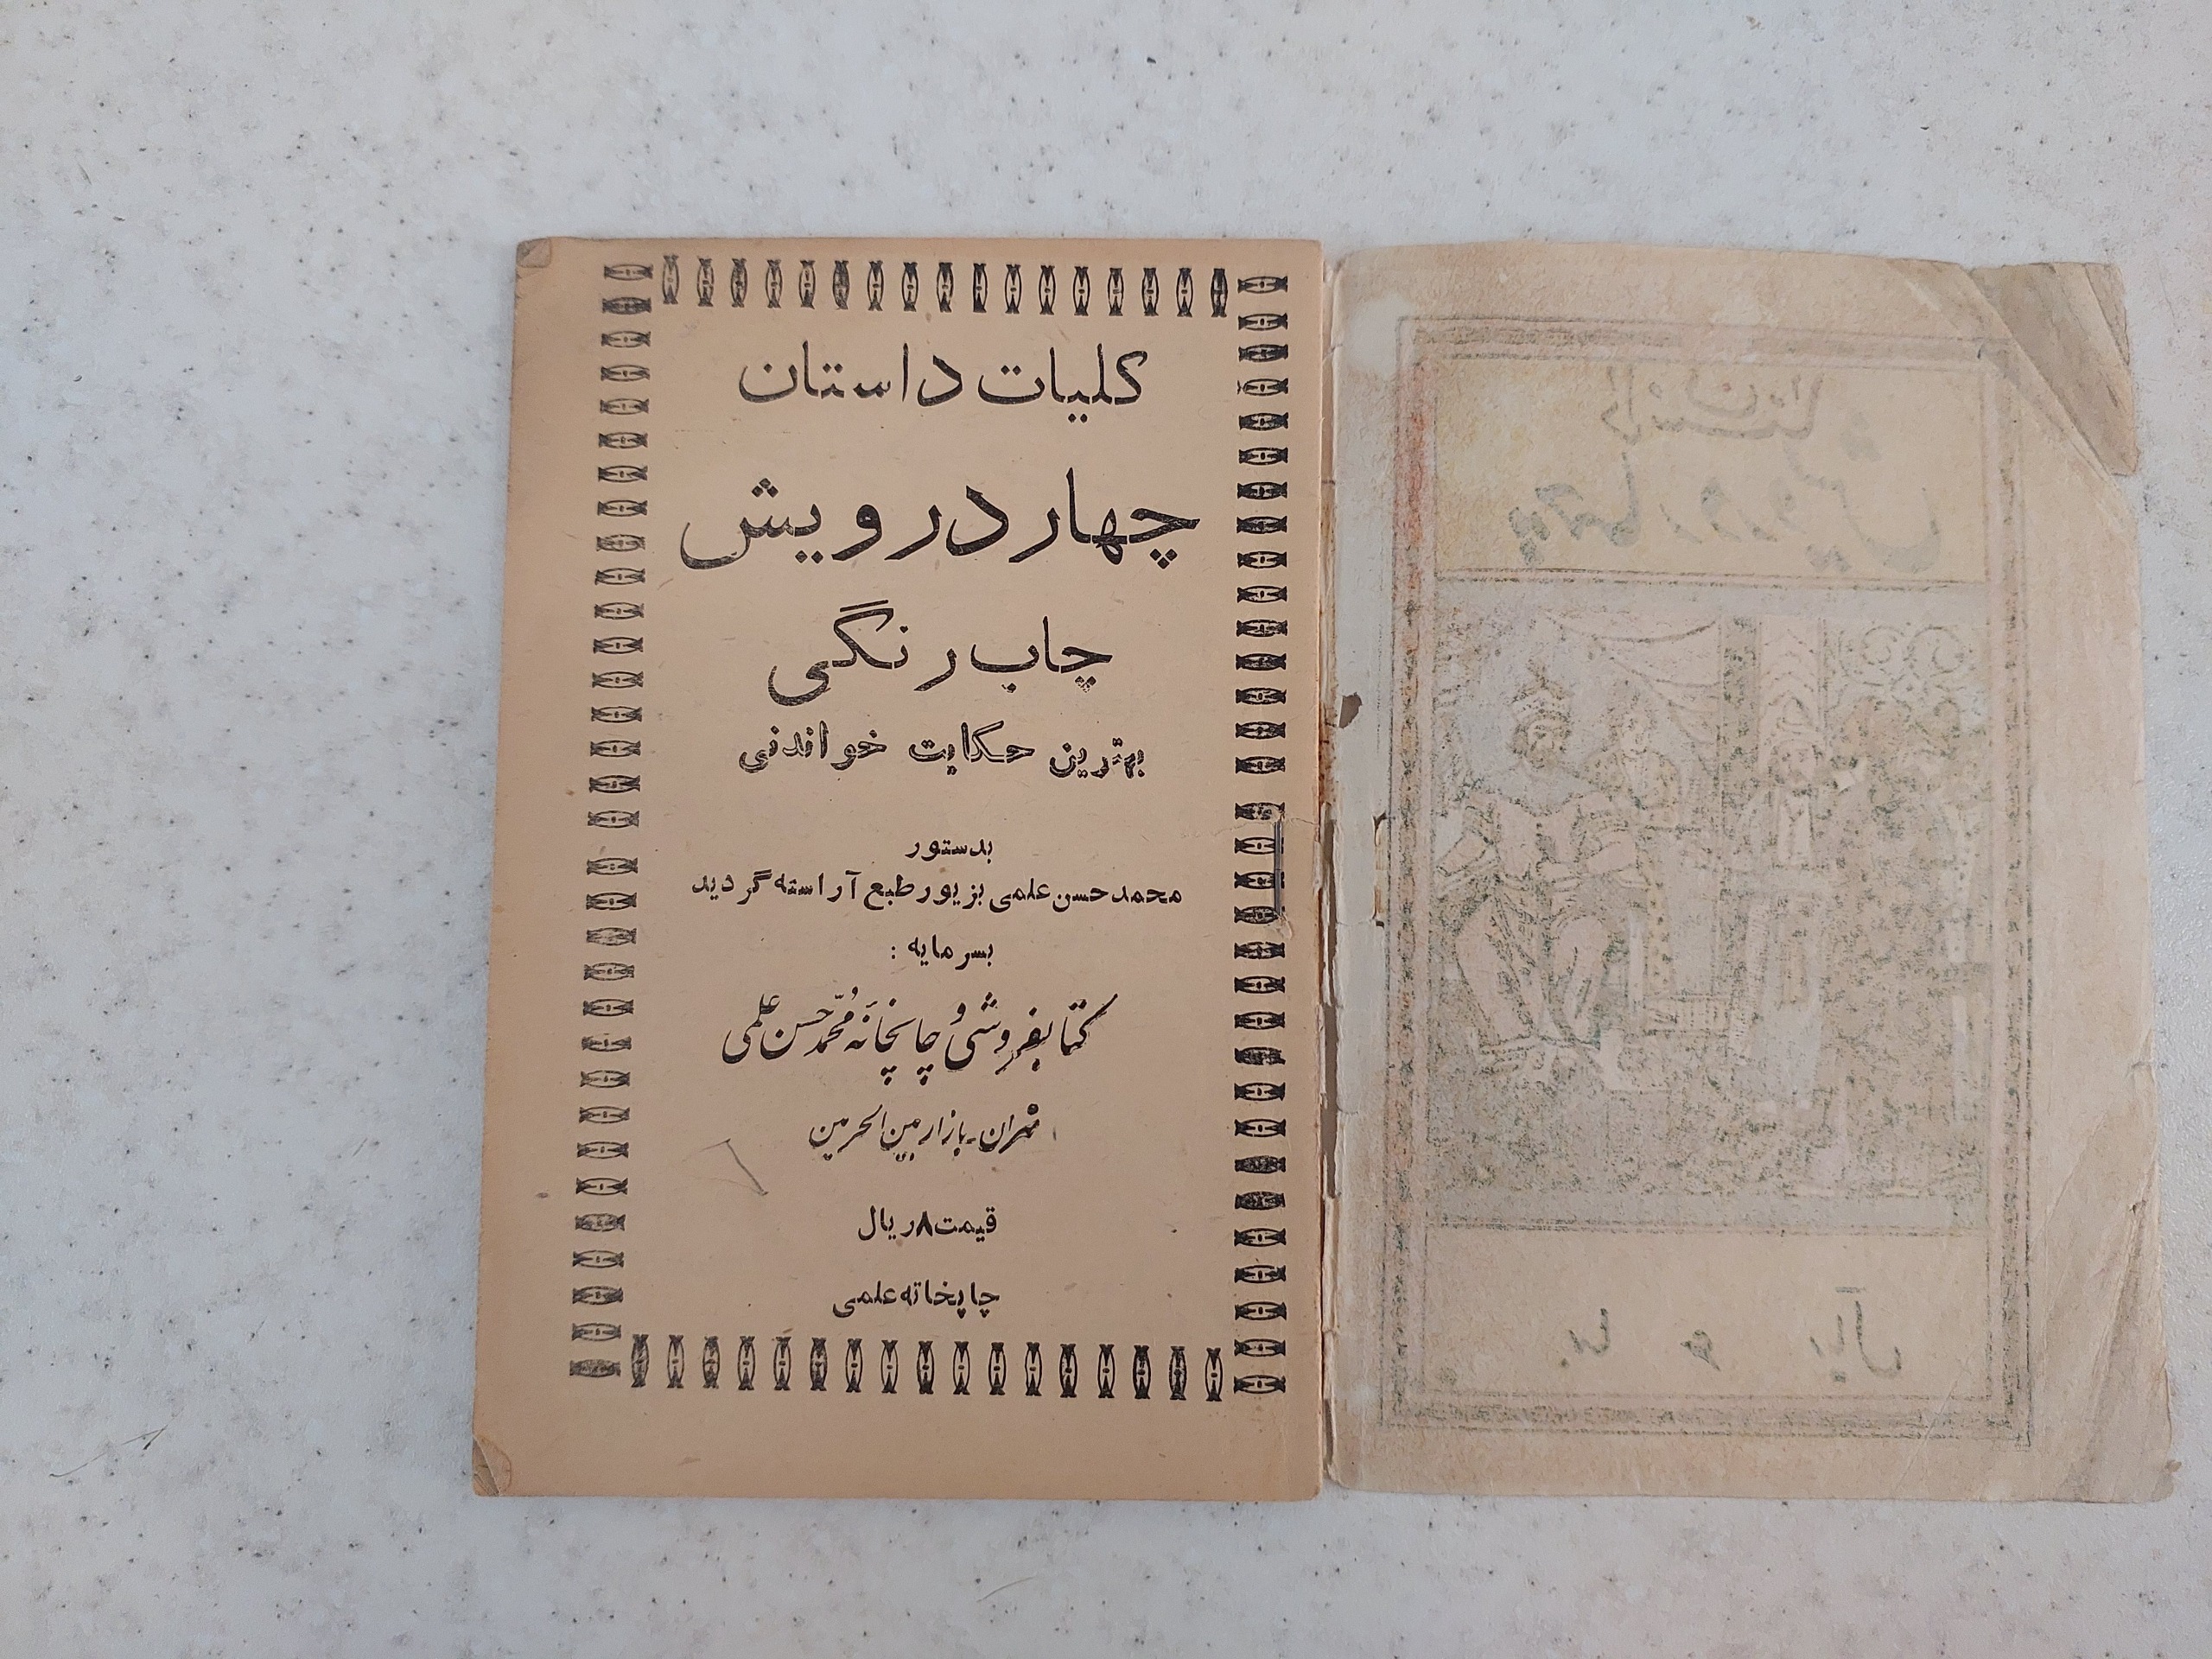 کلیات داستان
چهار درویش
چاپ رنگی
بهترین حکایت خواندنی
بدستور
محمد حسن علمی بزیور طبع آراسته گردید
بسرمایه :
کتابفروشی و چاپخانهٔ محمد حسن علمی
تهران - بازار بین الحرمین
قیمت ۸ ریال
چاپخانه علمی
داستان
چهار درویش